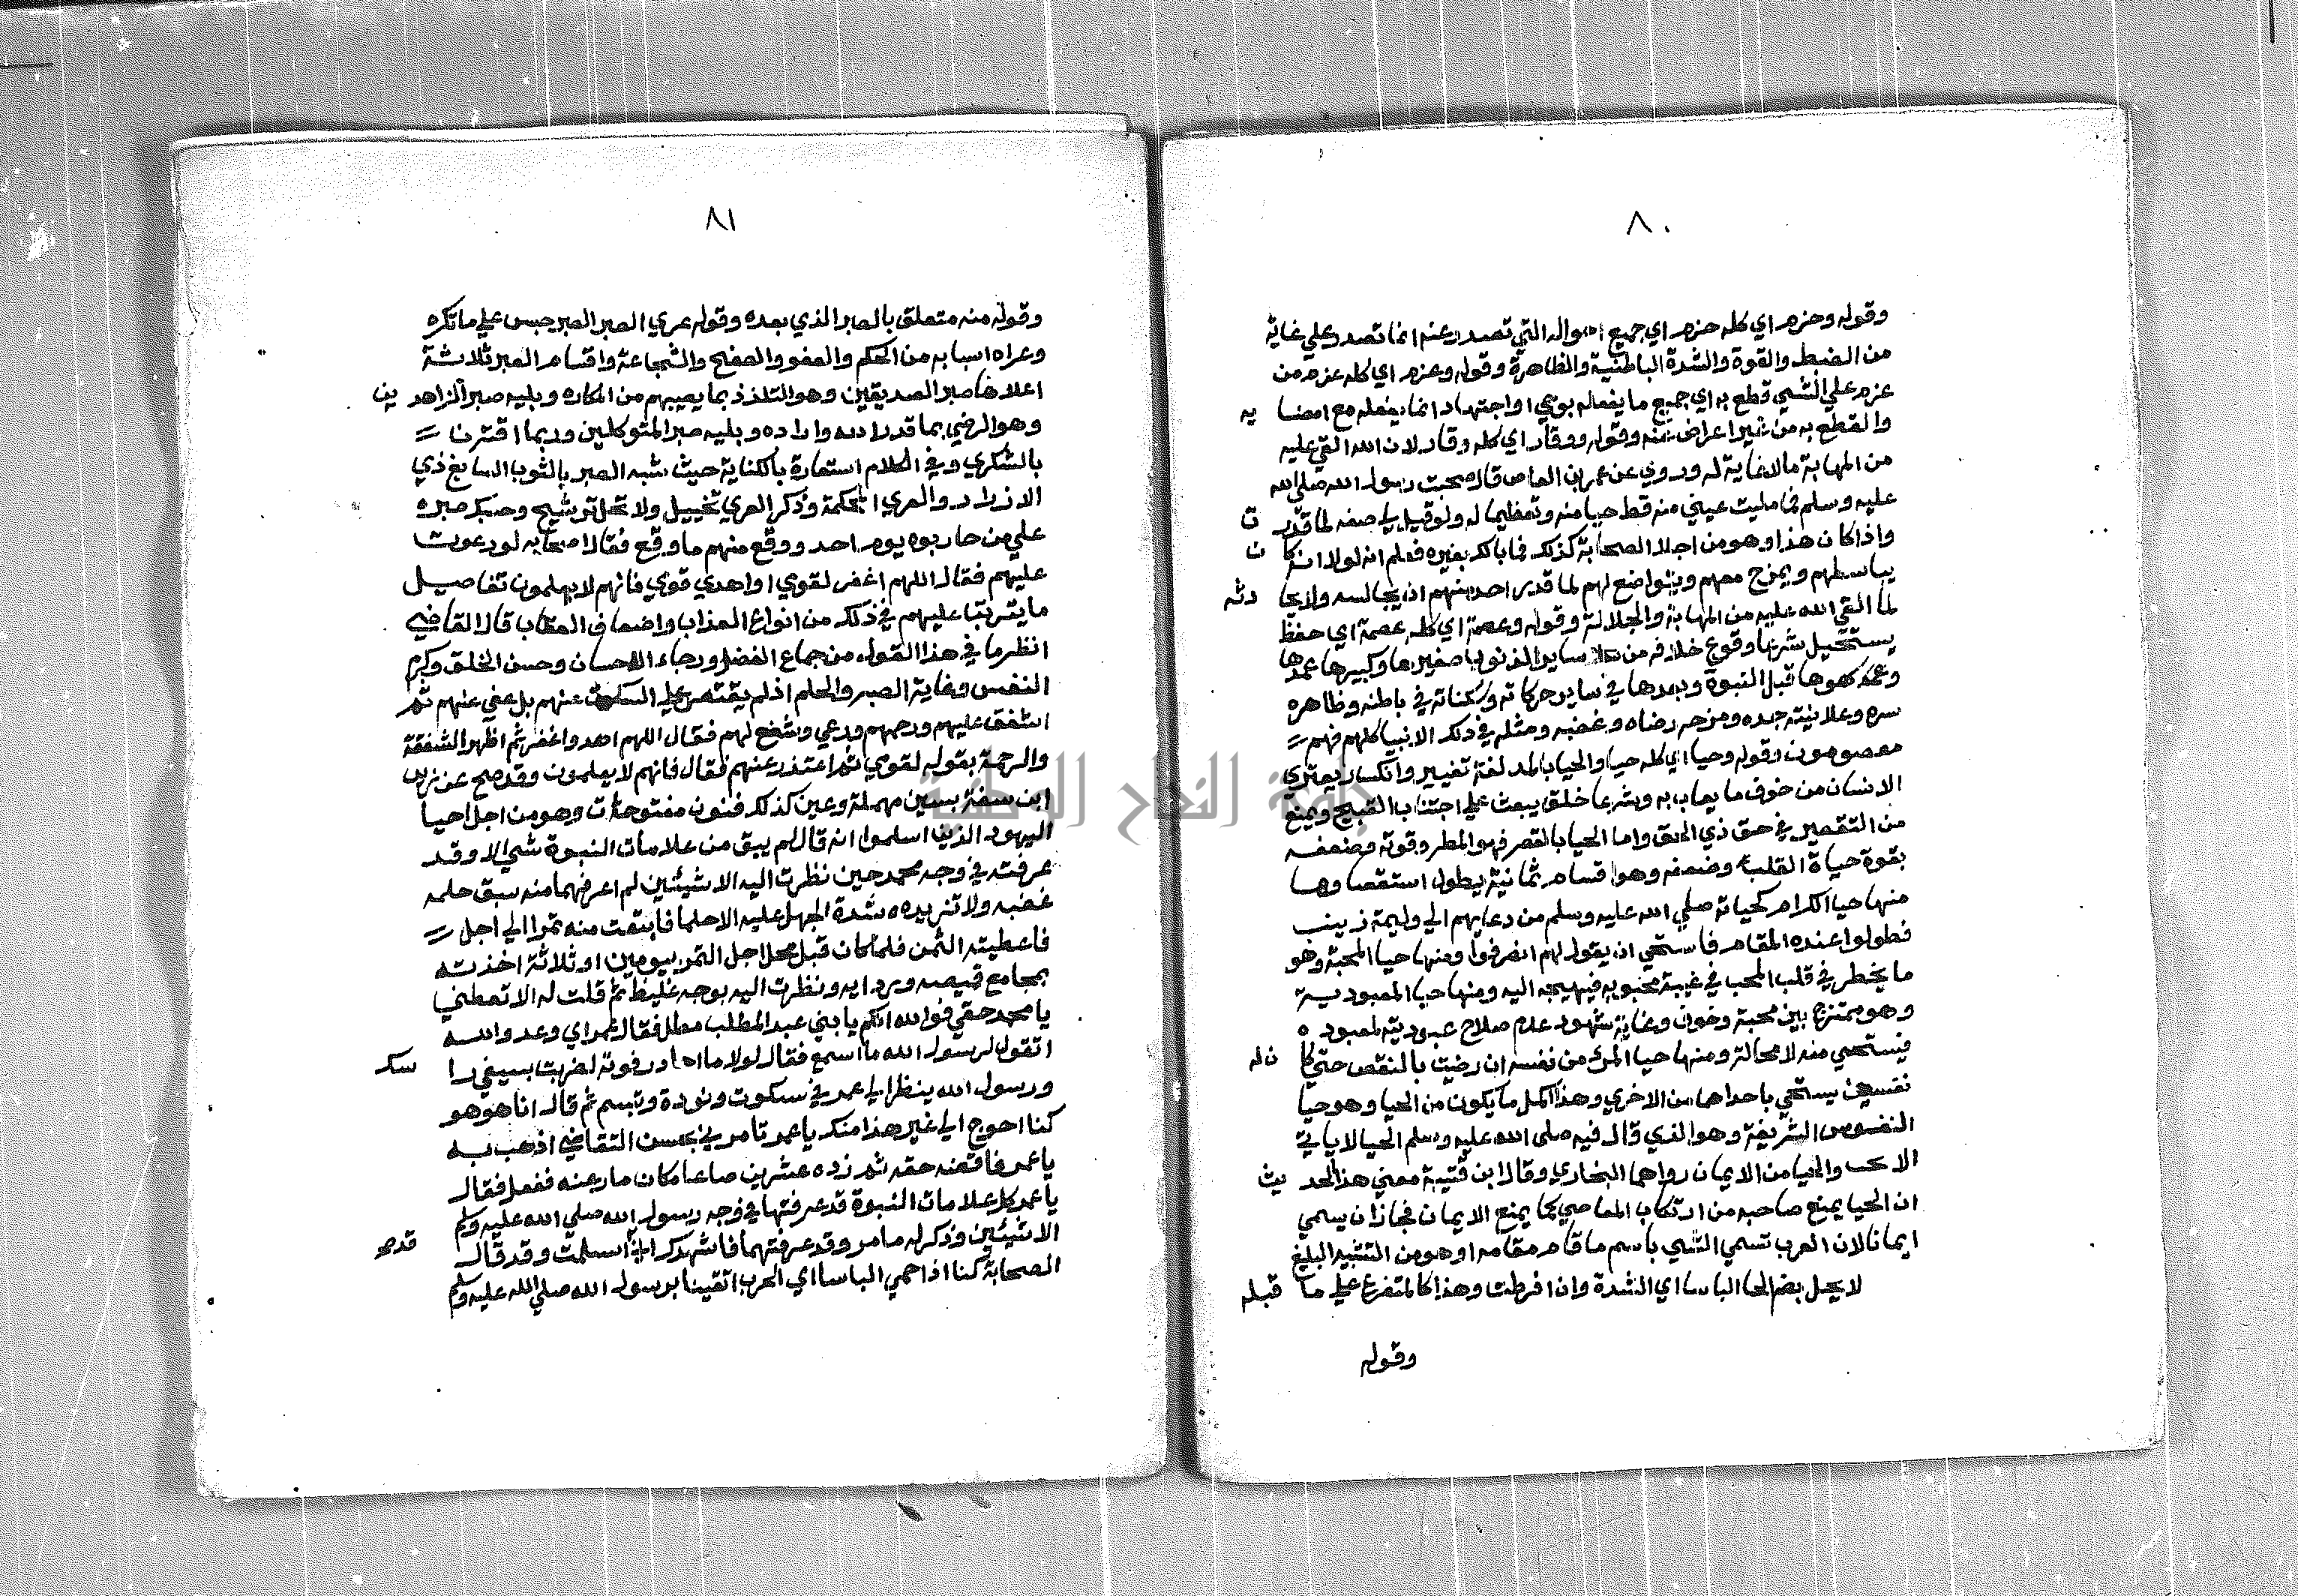 ٨٠
وقوله وحزم اي كله حزم اي جميع احواله التي تصدر عنه انما تصدر علي غاية
من الضبط والقوة والشدة الباطنية والظاهرة وقوله وعزم اي كله عزم من
عزم علي الشي قطع به اي جميع ما يفعله بوحي او اجتهاد انما يفعله مع امضا يه
والقطع به من غير اعراض عنه وقوله ووقار اي كله وقار لان الله القي عليه
من المهابة مالا غاية له وروي عن عمر بن العاص قال صحبت رسول الله صلي الله
عليه وسلم فما مليت عيني منه قط حيا منه وتعظيما له ولو قيل لي صفه لما قدر ت
واذا كان هذا وهو من اجلا الصحابة كذلك فما بالك بغيره فعلم انه لولا انه كا ن
يباسطهم ويمزح معهم ويتواضع لهم لما قدر احد منهم ان يجالسه ولا يحا دثه
لما القي الله عليه من المهابة والجلالة وقوله وعصمة اي كله عصمة اي حفظ
يستحيل شرعا وقوع خلافه من ساير الذنوب صغيرها وكبيرها عمدها
وعمد كهوها قبل النبوة وبعدها في ساير حركاته وسكناته في باطنه وظاهره
سره وعلانيته جده ومزحه رضاه وغضبه ومثله في ذلك الانبيا كلهم فهم
معصومون وقوله وحيا اي كله حيا والحيا بالمد لغة تغيير وانكسار يعتري
الانسان من خوف ما يعاب به وشرعا خلق يبعث علي اجتناب القبيح ويمنع
من التقصير في حق ذي الحق واما الحيا بالقصر فهو المطر وقوته وضعفه
بقوة حياة القلب وضعفه وهو اقسام ثمانية يطول استقصاوها
منها حيا الكرام كحياته صلي الله عليه وسلم من دعايهم الي وليمة زينب
فطولوا عنده المقام فاستحي ان يقول لهم انصرفوا ومنها حيا المحبة وهو
ما يخطر في قلب المحب في غيبة محبوبه فيهيجه اليه ومنها حيا العبودية
وهو ممتزج بين محبة وخوف وغاية شهود عدم صلاح عبوديته لمعبوده
فيستحي منه لا محالة ومنها حيا المرء من نفسه ان رضيت بالنقص حتي كا ن له
نفسين يستحي باحداهما من الاخري وهذا اكمل ما يكون من الحيا وهو حيا
النفوس الشريفة وهو الذي قال فيه صلي الله عليه وسلم الحيا لا ياتي
الا بخير والحيا من الايمان رواهما البخاري وقال ابن قتيبة معني هذا الحد يث
ان الحيا يمنع صاحبه من ارتكاب المعاصي كما يمنع الايمان فجاز ان يسمي
ايمانا لان العرب تسمي الشي باسم ما قام مقامه او هو من التشبيه البليغ
لا يحل بضم الحا الباسا اي الشدة وان افرطت وهذا كالمتفرع علي ما قبله
وقوله
٨١
وقوله منه متعلق بالصبر الذي بعده وقوله عري الصبر الصبر حبس علي ما تكره
وعراه اسبابه من الحكم والعفو والصفح والشجاعة واقسام الصبر ثلاثة
اعلاها صبر الصديقين وهو التلذذ بما يصيبهم من المكاره ويليه صبر الزاهد ين
وهو الرضي بما قدر الله واراده ويليه صبر المتوكلين وربما اقترنا
بالشكري وفي الكلام استعارة بالكناية حيث شبه الصبر بالثوب السابغ ذي
الازرار والعري المحكمة وذكر العري تخييل ولا تحل ترشيح وحسبك صبره
علي من حاربوه يوم احد ووقع منهم ما وقع فقال اصحابه لو دعوت
عليهم فقال اللهم اغفر لقومي او اهدي قومي فانهم لا يعلمون تفاصيل
ما يترتب عليهم في ذلك من انواع العذاب واضعاف العقاب قال القاضي
انظر ما في هذا القول من جماع الفضل ورجاء الاحسان وحسن الخلق وكرم
النفس وغاية الصبر والحلم اذ لم يقتصر علي السكوت عنهم بل عفي عنهم ثم
اشفق عليهم ورحمهم ودعي وشفع لهم فقال اللهم اهد واغفر ثم اظهر الشفقة
والرحمة بقوله لقومي ثم اعتذر عنهم فقال فانهم لا يعلمون وقد صح عن زيد
ابن سعنة بسين مهملة وعين كذلك فنون مفتوحات وهو من اجل احبا
اليهود الذين اسلموا انه قال لم يبق من علامات النبوة شي الا وقد
عرفته في وجه محمد حين نظرت اليه الا شيئين لم اعرفهما منه سبق حلمه
غضبه ولا تزيده شدة الجهل عليه الا حلما فابتعت منه تمرا الي اجل
فاعطيته الثمن فلما كان قبل محل اجل التمر بيومين او ثلاثة اخذته
بمجامع قميصه وردايه ونظرت اليه بوجه غليظ ثم قلت له الا تعطني
يا محمد حقي فوالله انكم يا بني عبد المطلب مطل فقال عمر اي وعدوالله
اتقول لرسول الله ما اسمع فقال لولا ما احاذر فوته لضربت بسيفي را سك
ورسول الله ينظر الي عمر في سكوت وتودة وتبسم ثم قال انا وهو
كنا احوج الي غير هذا منك يا عمر تامرني بحسن التقاضي اذهب به
يا عمر فاقضه حقه ثم زده عشرين صاعا مكان ما رعته ففعل فقال
يا عمر كل علامات النبوة قد عرفتها في وجه رسول الله صلي الله عليه وسلم
الا شيئين وذكر له ما مر وقد عرفتهما فاشهدك اني اسلمت وقد قال قد صح
الصحابة كنا اذا حمي الباسا اي الحرب اتقينا برسول الله صلي الله عليه وسلم
جامعة النجاح الوطنية